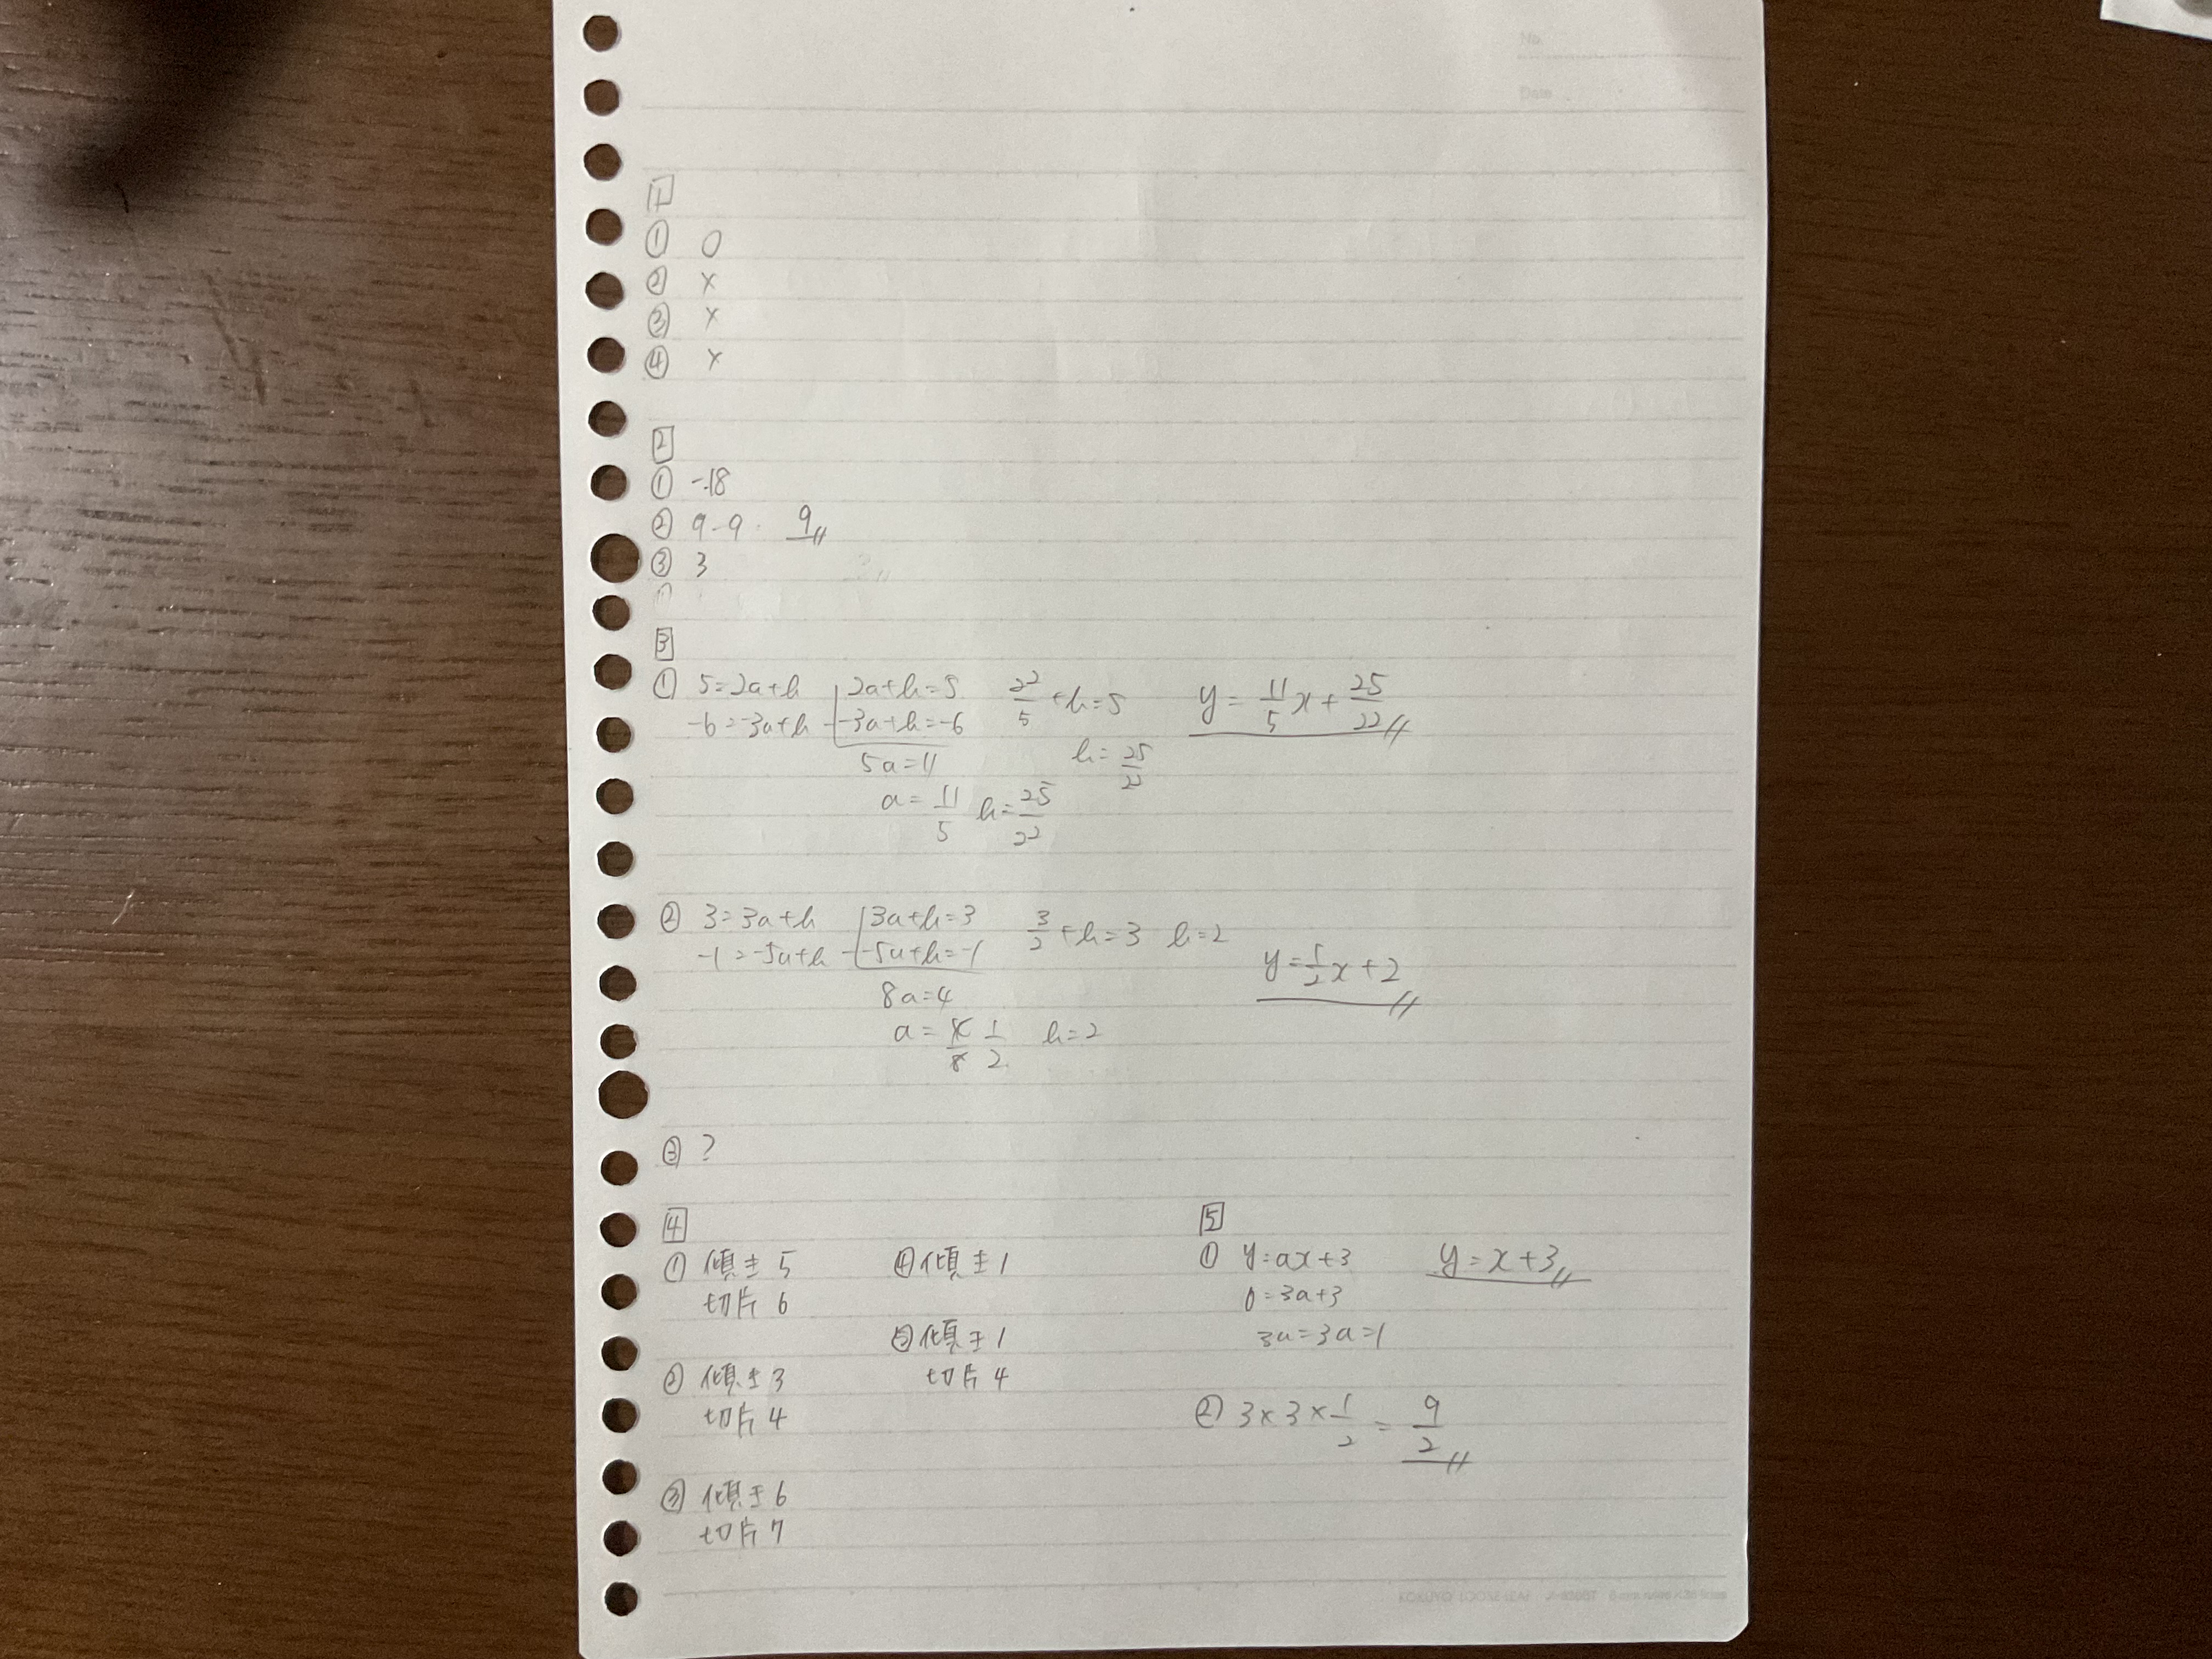 No.
Date
1
① ○
② ×
③ ×
④ ×
2
① -18
② 9-9 9
③ 3
3
① 5=2a+b 2a+b=5 22/5+b=5 y=11/5x+25/22
-6=-3a+b - -3a+b=-6
5a=11 b=25/22
a=11/5 b=25/22
② 3=3a+b 3a+b=3 3/2+b=3 b=2
-1=-5a+b - -5a+b=-1 y=1/2x+2
8a=4
a=4/8 1/2 b=2
③ ?
4
① 傾き 5
切片 6
② 傾き 3
切片 4
③ 傾き 6
切片 7
④ 傾き 1
⑤ 傾き 1
切片 4
5
① y=ax+3 y=x+3
0=3a+3
3a=3a=1
② 3×3×1/2=9/2